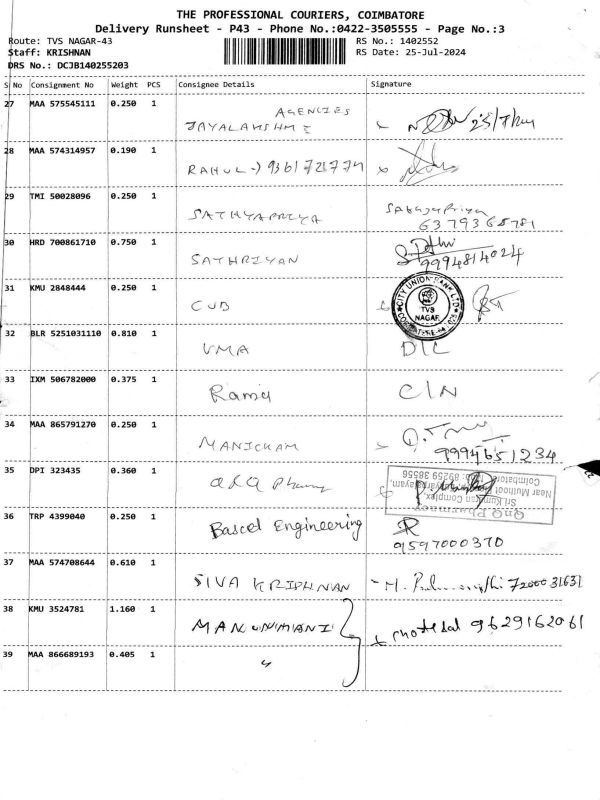 THE PROFESSIONAL COURIERS, COIMBATORE
Delivery Runsheet - P43 - Phone No.:0422-3505555 - Page No.:3
Route: TVS NAGAR-43
RS No.: 1402552
Staff: KRISHNAN
RS Date: 25-Jul-2024
DRS No.: DCJB140255203
S No Consignment No Weight PCS Consignee Details Signature
27 MAA 575545111 0.250 1
AGENCIES
JAYALAKSHMI
28 MAA 574314957 0.190 1
RAHUL
29 TMI 50028096 0.250 1
SATHYAPRIYA Sathyapriya
6379365781
30 HRD 700861710 0.750 1
SATHRIYAN
9994814024
31 KMU 2848444 0.250 1
CUB
CITY UNION BANK LTD
TVS
NAGAR
32 BLR 5251031110 0.810 1
VMA D/C
33 IXM 506782000 0.375 1
Ramy C/N
34 MAA 865791270 0.250 1
MANICKAM
9994651234
35 DPI 323435 0.360 1
QnQ Pharmacy
Sri Kumaran Complex,
Near Muthoot
Coimbatore 89259 38556
36 TRP 4399040 0.250 1
Bascel Engineering
9597000370
37 MAA 574708644 0.610 1
SIVA KRISHNAN 7200031631
38 KMU 3524781 1.160 1
MANUNMANI 9629162061
39 MAA 866689193 0.405 1
"